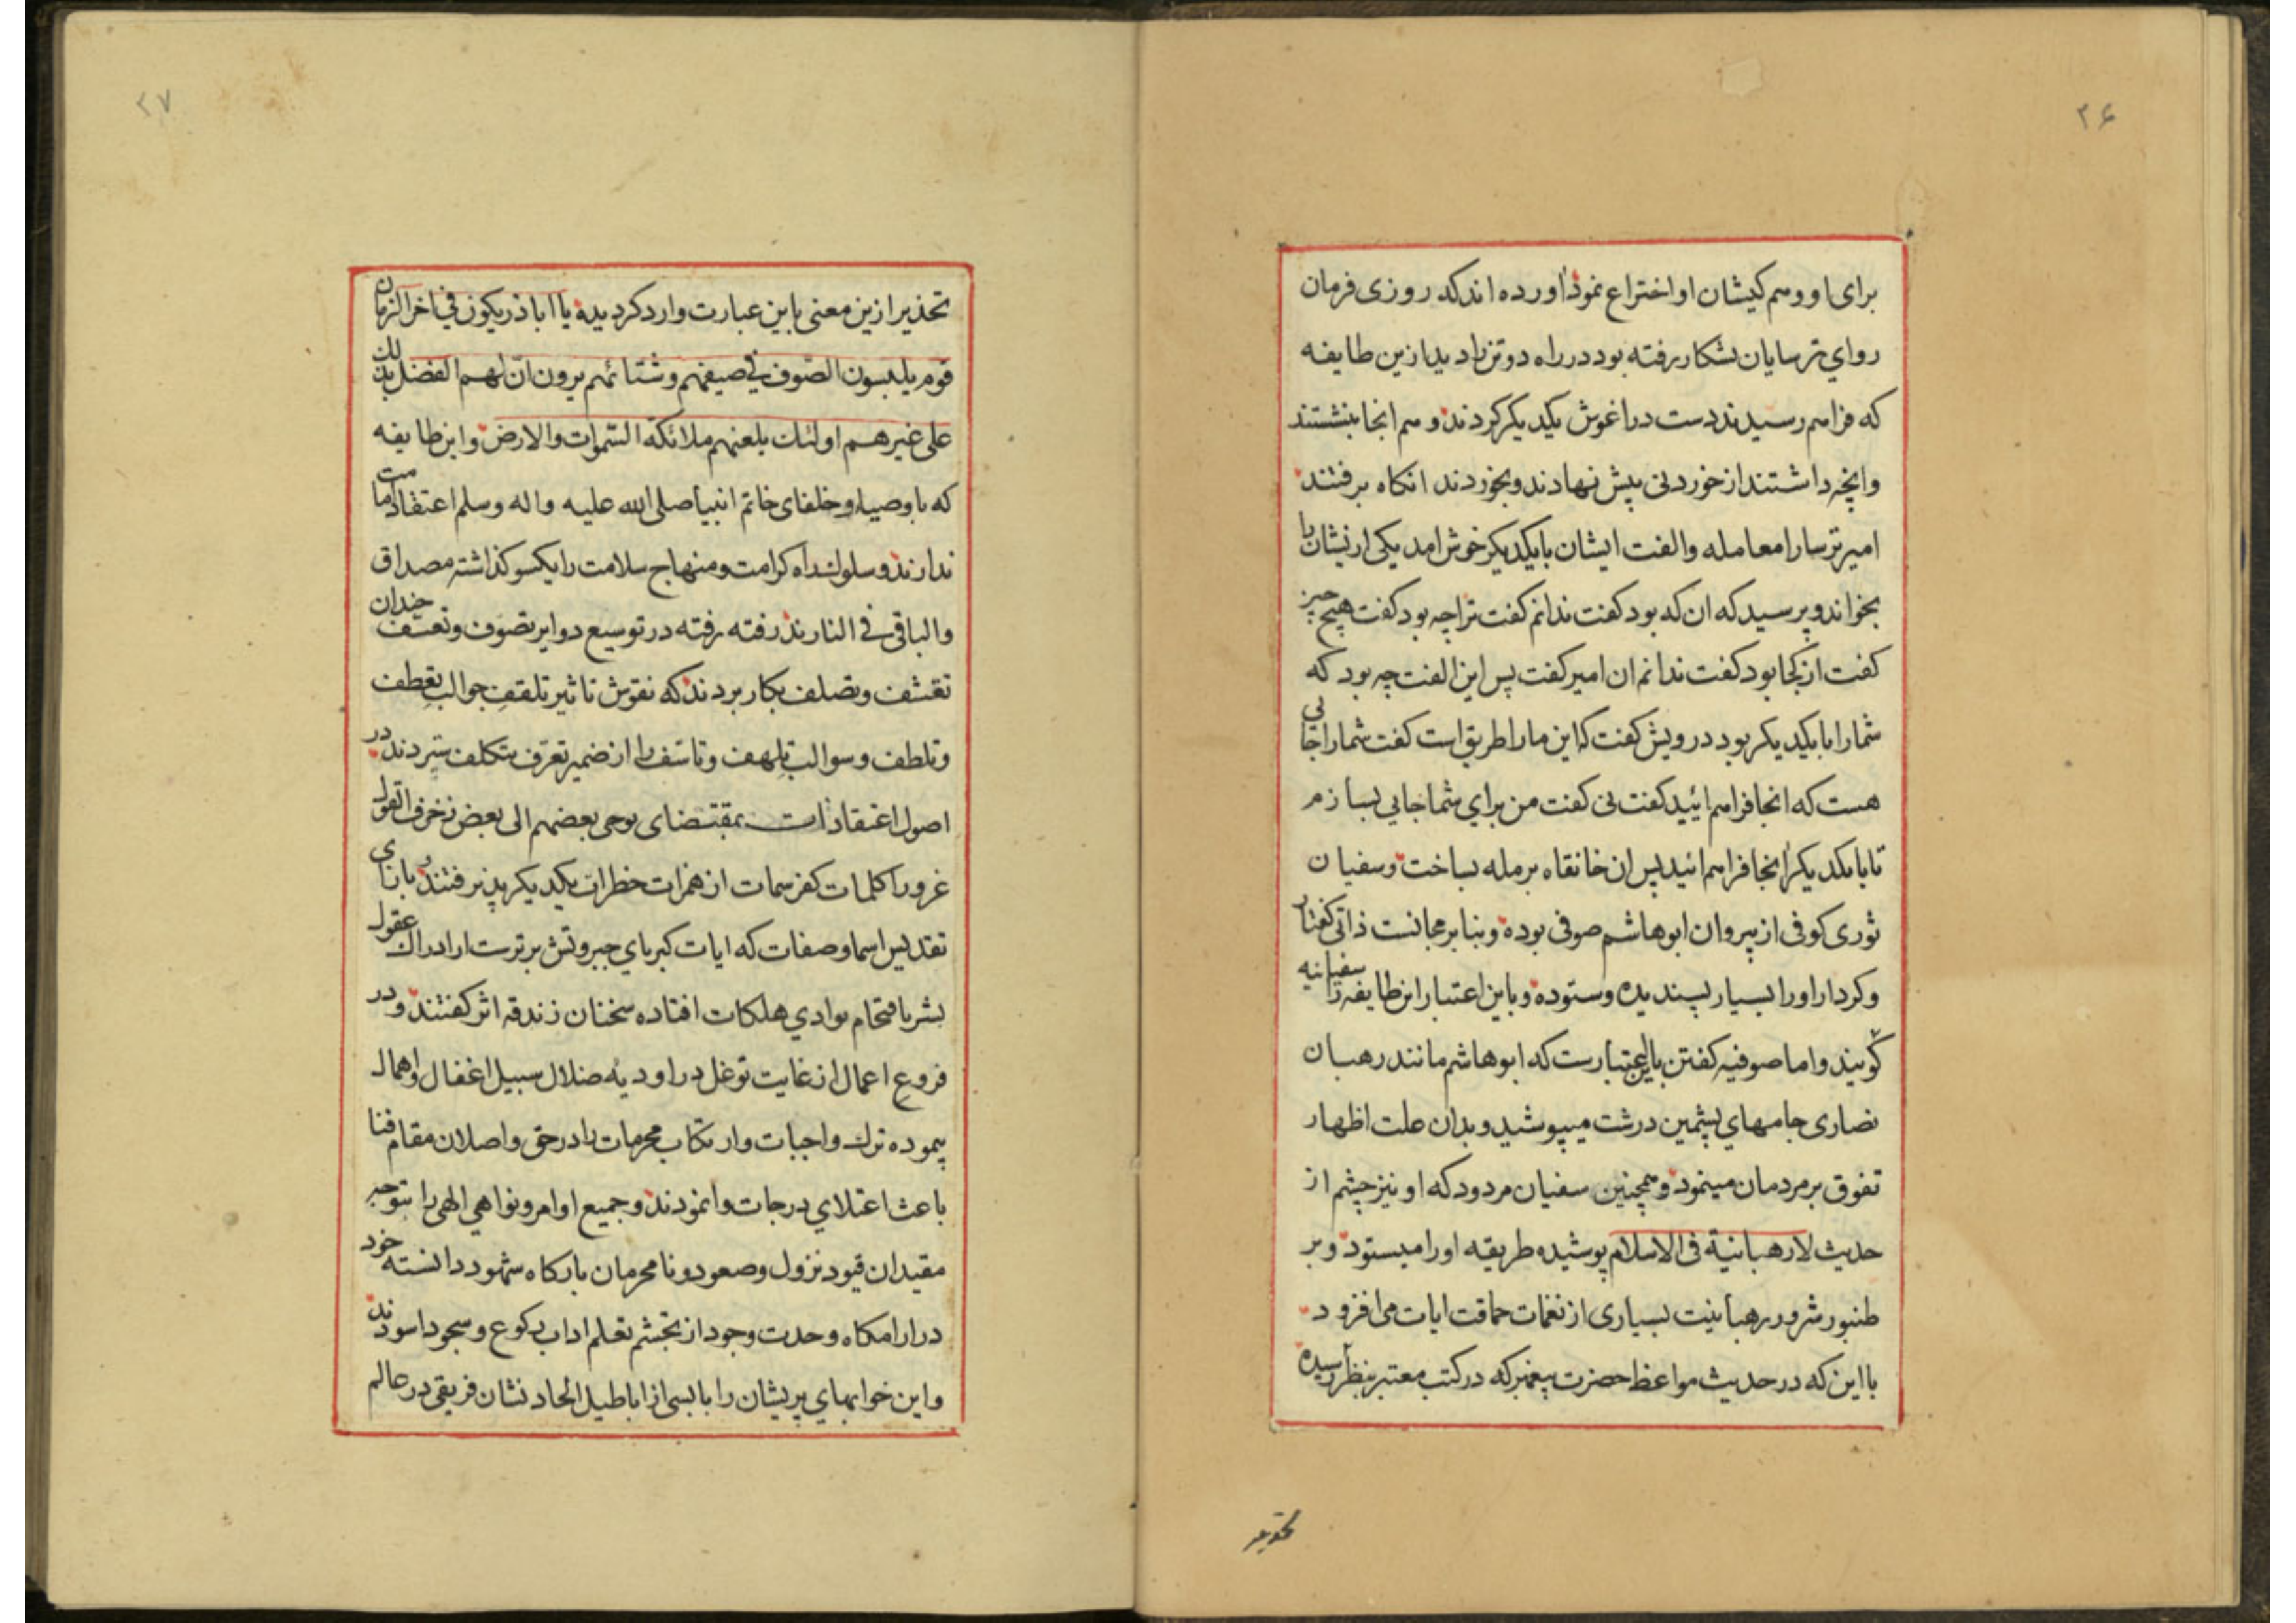 ۲۶
برای او و هم کیشان او اختراع نموده اورده اند که روزی فرمان
روای ترسایان بشکار رفته بود در راه دو تن را دید از ین طایفه
که فراهم رسیدند دست در اغوش یکدیکر کردند و هم انجا بنشستند
وانچه داشتند از خوردنی پیش نهادند و بخوردند انکاه برفتند
امیر ترسا را معامله و الفت ایشان با یکدیکر خوش امد یکی از یشان را
بخواند و پرسید که ان که بود کفت ندانم کفت ترا چه بود کفت هیچ چیز
کفت از کجا بود کفت ندانم ان امیر کفت پس این الفت چه بود که
شما را با یکدیکر بود درویش کفت که این ما را طریق است کفت شما را جائی
هست که انجا فراهم ائید کفت نی کفت من برای شما جایی بسازم
تا با یکدیکر انجا فراهم ائید پس ان خانقاه برمله بساخت و سفیان
ثوری کوفی از پیروان ابوهاشم صوفی بوده و بنا بر مجانست ذاتی کفتار
و کردار او را بسیار پسندیده و ستوده و باین اعتبار این طایفه را سفیانیه
کویند و اما صوفیه کفتن باین اعتبارست که ابوهاشم مانند رهبان
نصاری جامهای پشمین درشت میپوشید و بدان علت اظهار
تفوق بر مردمان مینمود و همچنین سفیان مردود که او نیز چشم از
حدیث لا رهبانیة فی الاسلام پوشیده طریقه او را میستود و بر
طنبور شرور رهبانیت بسیاری از نغمات حماقت ایات می افزود
با این که در حدیث مواعظ حضرت پیغمبر که در کتب معتبر بنظر رسیده
۲۷
تحذیر ازین معنی باین عبارت وارد کردیده یا اباذر یکون فی اخر الزمان
قوم یلبسون الصوف فی صیفهم و شتائهم یرون ان لهم الفضل بذلك
علی غیرهم اولئك یلعنهم ملائکة السموات والارض و این طایفه
که باوصیا و خلفای خاتم انبیا صلی الله علیه واله وسلم اعتقاد امامت
ندارند و سلوك راه کرامت و منهاج سلامت را یکسو کذاشته مصداق
والباقی فی النارند رفته رفته در توسیع دوایر تصوف و تعسف چندان
تقشف و تصلف بکار بردند که نقوش تاثیر تلقف جوالب تعطف
و تلطف و سوالب تلهف و تاسف را از ضمیر تعرف بتکلف ستردند در
اصول اعتقادات بمقتضای یوحی بعضهم الی بعض زخرف القول
غرورا کلمات کفر سمات از همزات خطرات یکدیکر پذیرفتند در باب
تقدیس اسما و صفات که ایات کبریای جبروتش برترست از ادراك عقول
بشر باقتحام بوادی هلکات افتاده سخنان زندقه اثر کفتند و در
فروع اعمال از غایت توغل در اودیه ضلال سبیل اغفال و اهمال
پیموده ترك واجبات و ارتکاب محرمات را در حق واصلان مقام فنا
باعث اعتلای درجات وانمودند و جمیع اوامر و نواهی الهی را متوجه
مقیدان قیود نزول و صعود و نامحرمان بارکاه شهود دانسته خود
در ارامکاه وحدت وجود از تجشم تعلم اداب رکوع و سجود اسودند
و این خوابهای پریشان را با بسی از اباطیل الحاد نشان فریقی در عالم